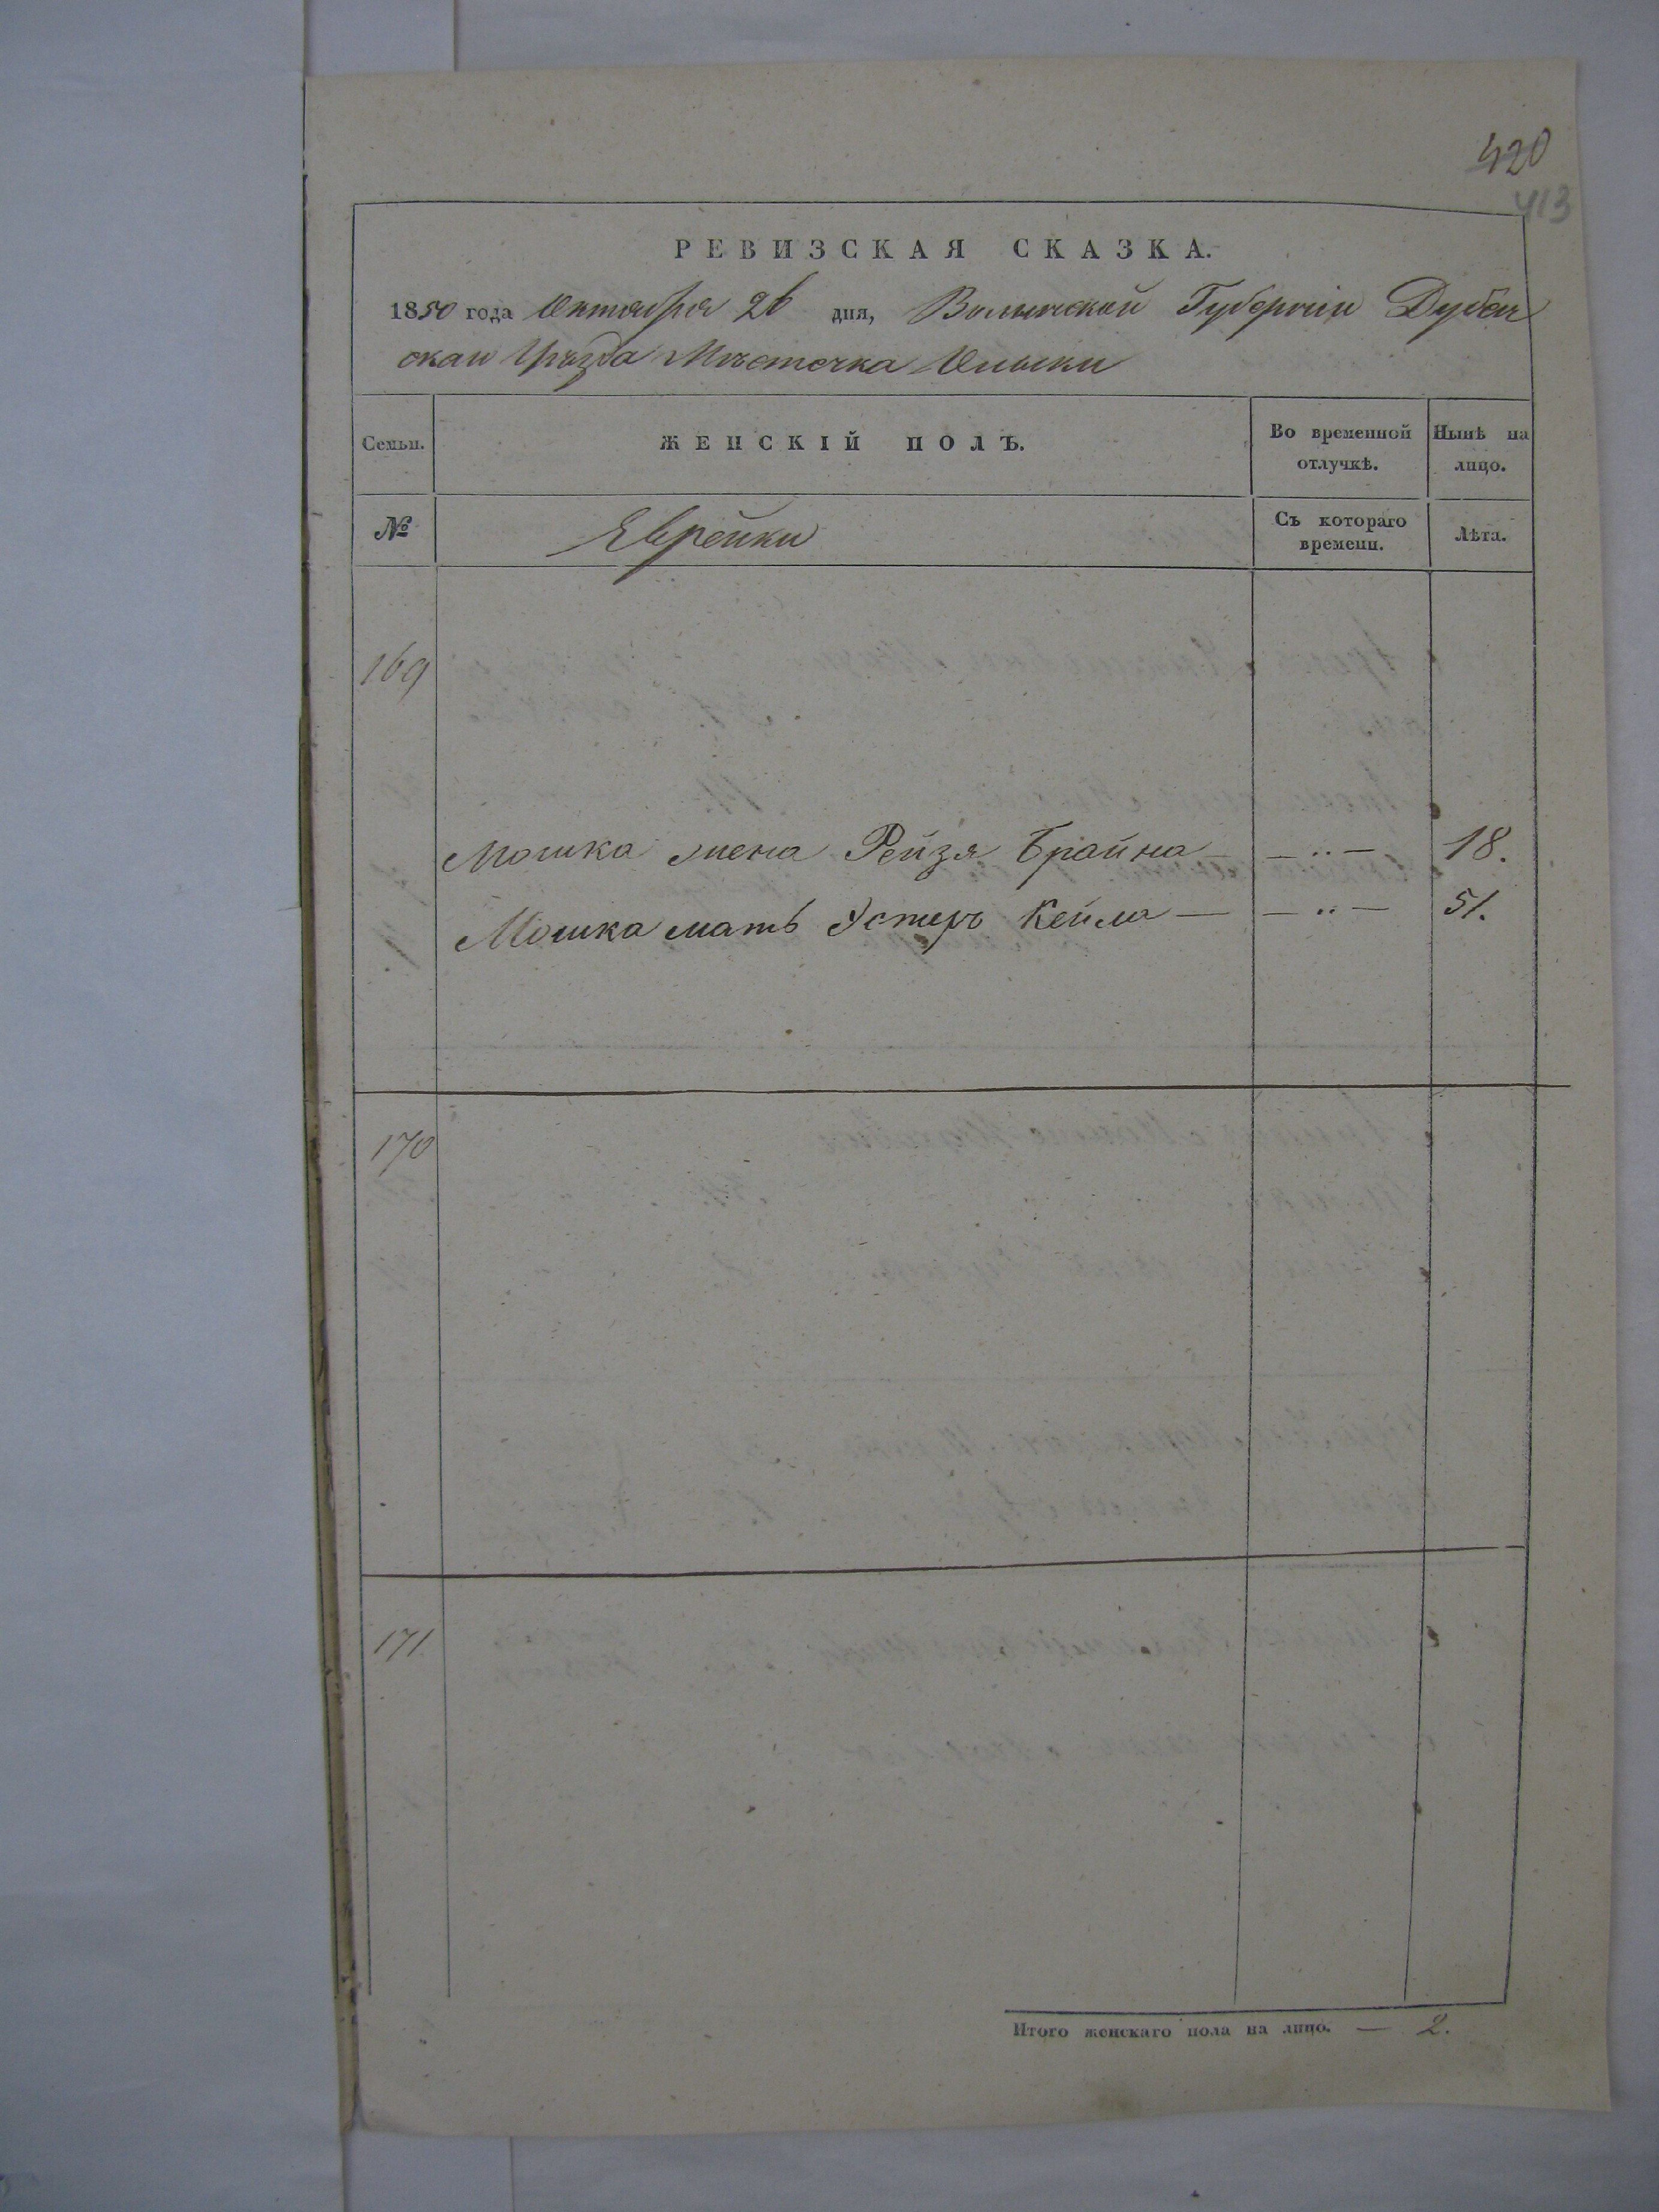 420
413
РЕВИЗСКАЯ СКАЗКА.
1850 года Октября 26 дня, Волынской Губерніи Дубен
скаго Уѣзда Мѣстечка Олыки
Семьи. ЖЕНСКІЙ ПОЛЪ. Во временной отлучкѣ. Нынѣ на лицо.
№ Еврейки Съ котораго времени. Лѣта.
169
Мошка жена Рейзя Брайна — — " — 18.
Мошка мать Эстеръ Кейла — — " — 51.
170
171
Итого женскаго пола на лицо. — 2.